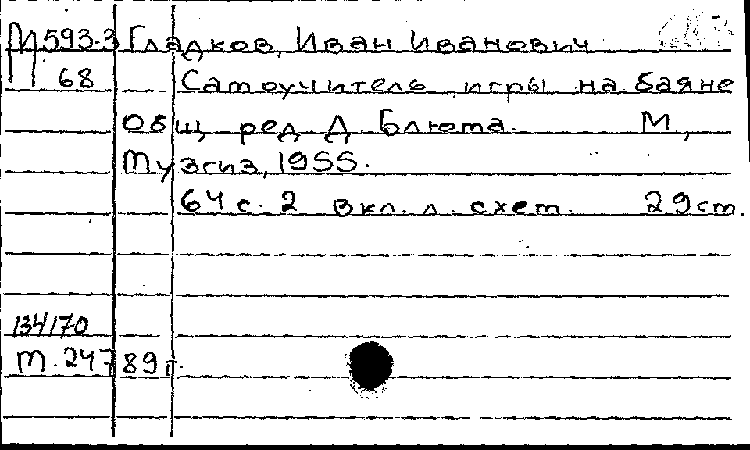 М593.3 Гладков, Иван Иванович
68 Самоучитель игры на баяне
Общ ред Д Блюма. М,
Музгиз, 1955.
64 с. 2 вкл. л. схем. 29см.
134/70
т. 247 89 г.